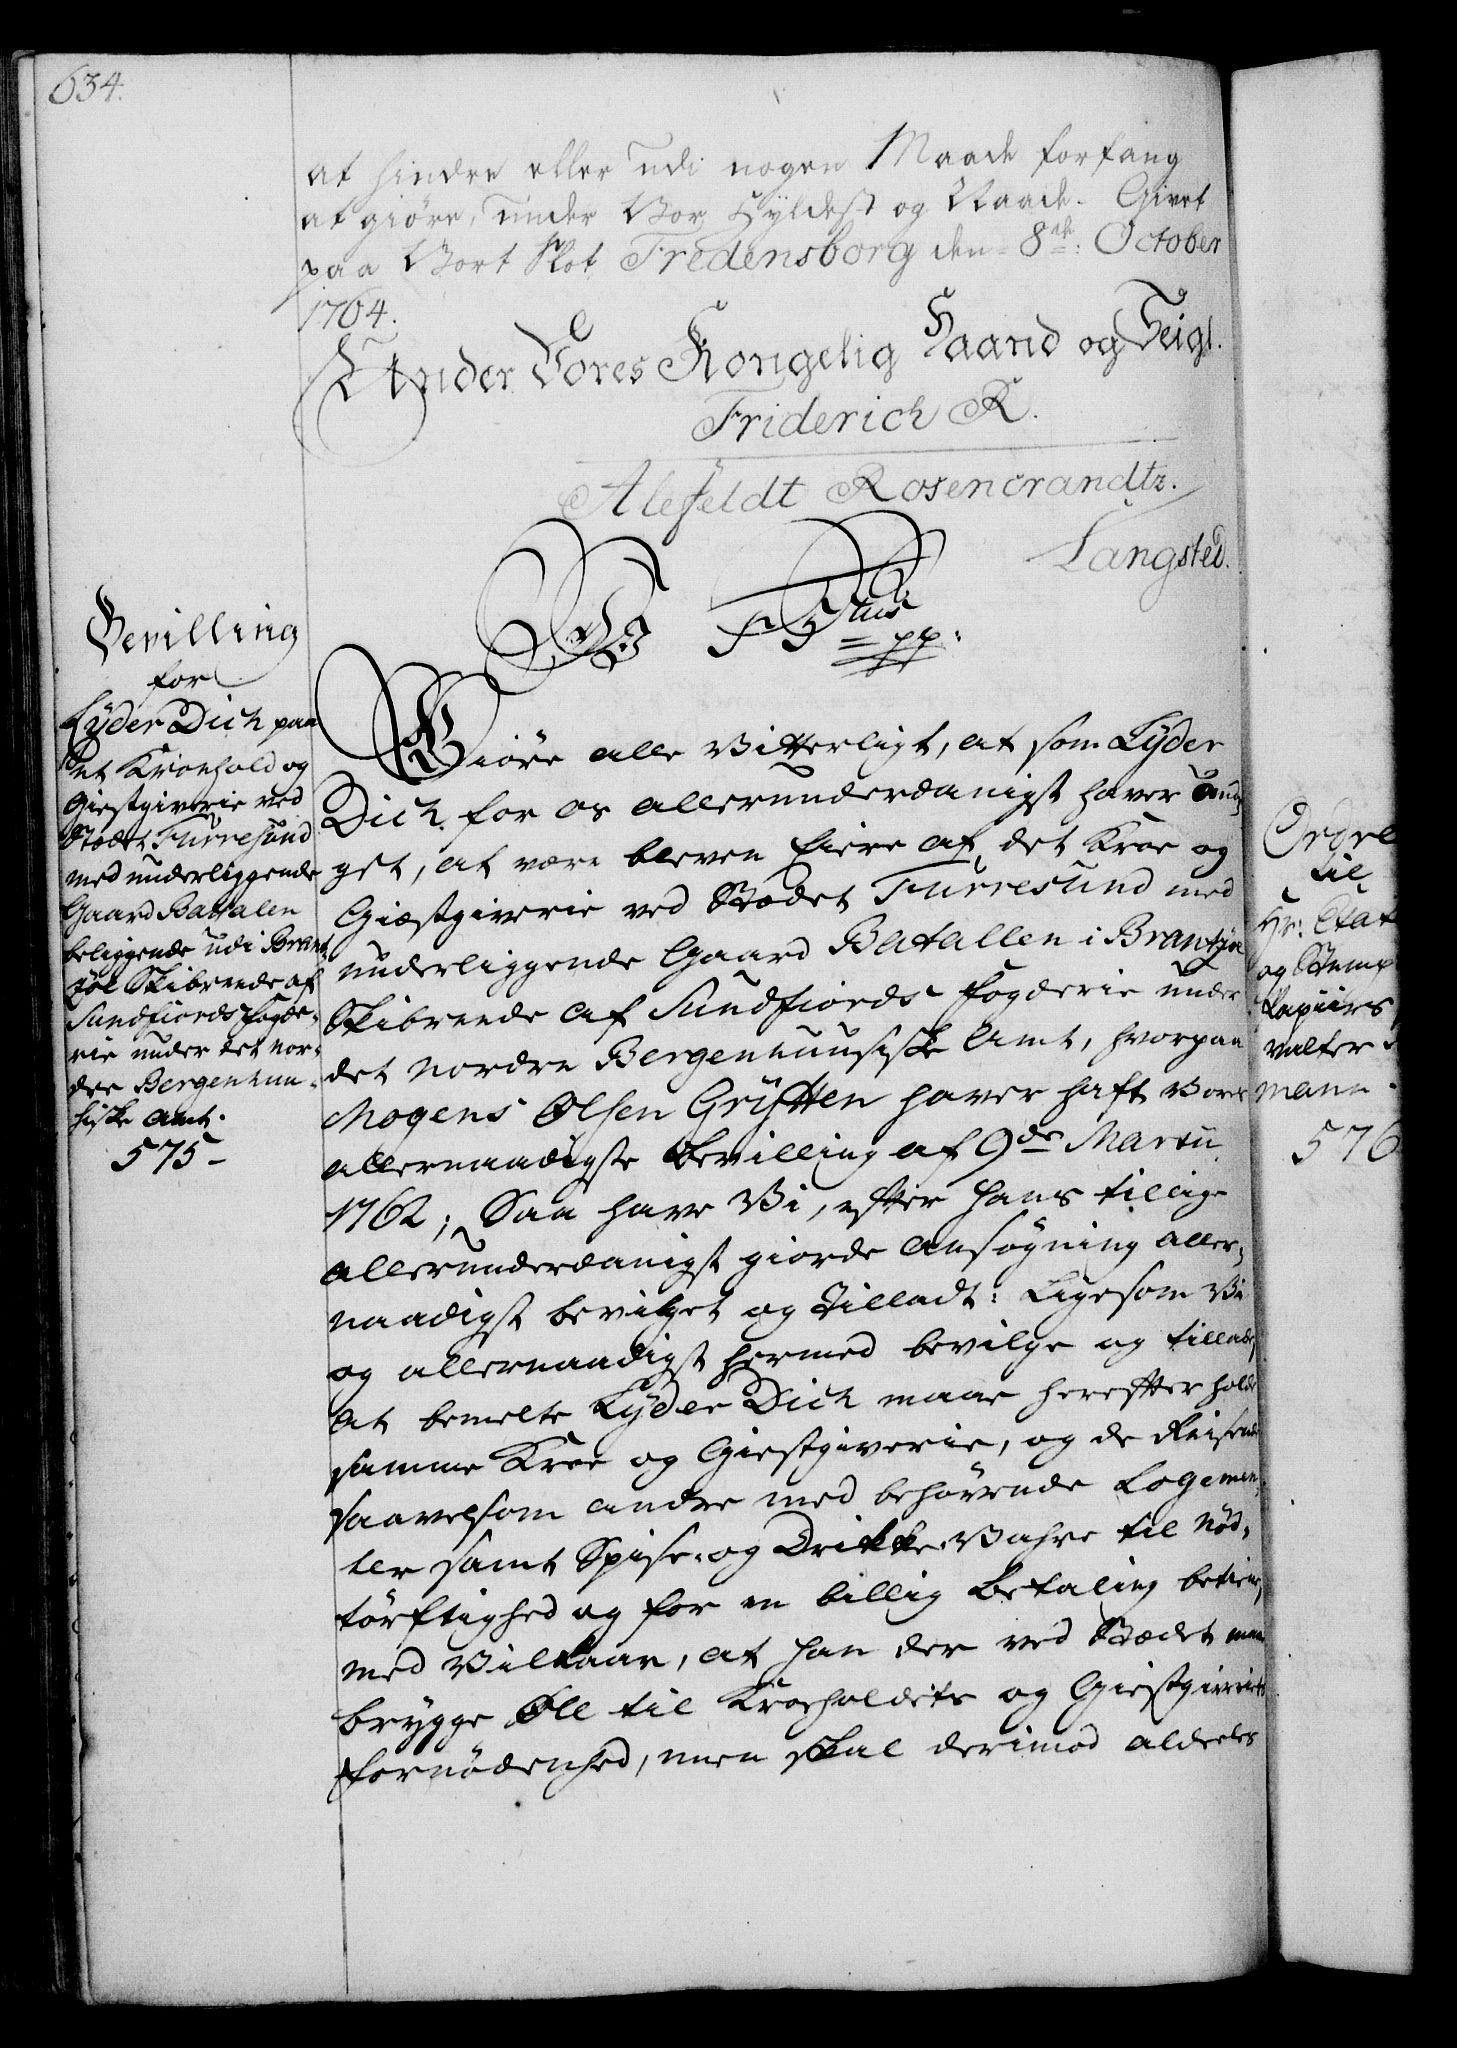 634.
at hindre eller udi nogen Maade forfang
at giöre, under Vor Hyldest og Naade. Givet
paa Vort Slot Fredensborg den 8de October
1764.
Under Vores Kongelig Haand og Seigl.
Friderich R.
Alefeldt Rosencrandtz.
Langsted.
Bevilling
for
Lyder Dich paa
et Kroehold og
Giestgiverie ved
Stædet Furresund
med underliggende
Gaard Batalen
beliggende udi Brand
zöe Skibrede af
Sundfiords Fogde-
rie under det Nor-
dre Bergenhuu-
siske Amt.
575-
Vi F 5tus
pp:
Giöre alle Vitterligt, at som Lyder
Dich for os allerunderdanigst haver an-
get, at være bleven Eiere af det Kroe og
Giæstgiverie ved Stædet Furresund med
underliggende Gaard Batallen i Brantzöe
Skibrede af Sundfiords Fogderie under
det Nordre Bergenhuusiske Amt, hvorpaa
Mogens Olsen Grÿtten haver haft Vores
allernaadigste Bevilling af 9de Martii
1762; Saa have Vi, efter hans tillige
allerunderdanigst giorde Ansögning aller-
naadigst bevilget og Tilladt: Ligesom Vi
og allernaadigst hermed bevilge og tillade,
at bemelte Lyder Dich maae herefter holde
samme Kroe og Giestgiverie, og de Reisende
saavelsom andre med behövende Logemen-
ter samt Spise- og Drikke-Vahre til Nöd-
törftighed og for en billig Betaling betiene,
med Vilkaar, at han der ved Stædet maa
brygge Öll til Kroeholdets og Giestgiveriets
Fornödenhed, men skal derimod aldeeles
Ordre
til
Hr: Etat
og Stemp
Papiirs
valter
mann
576